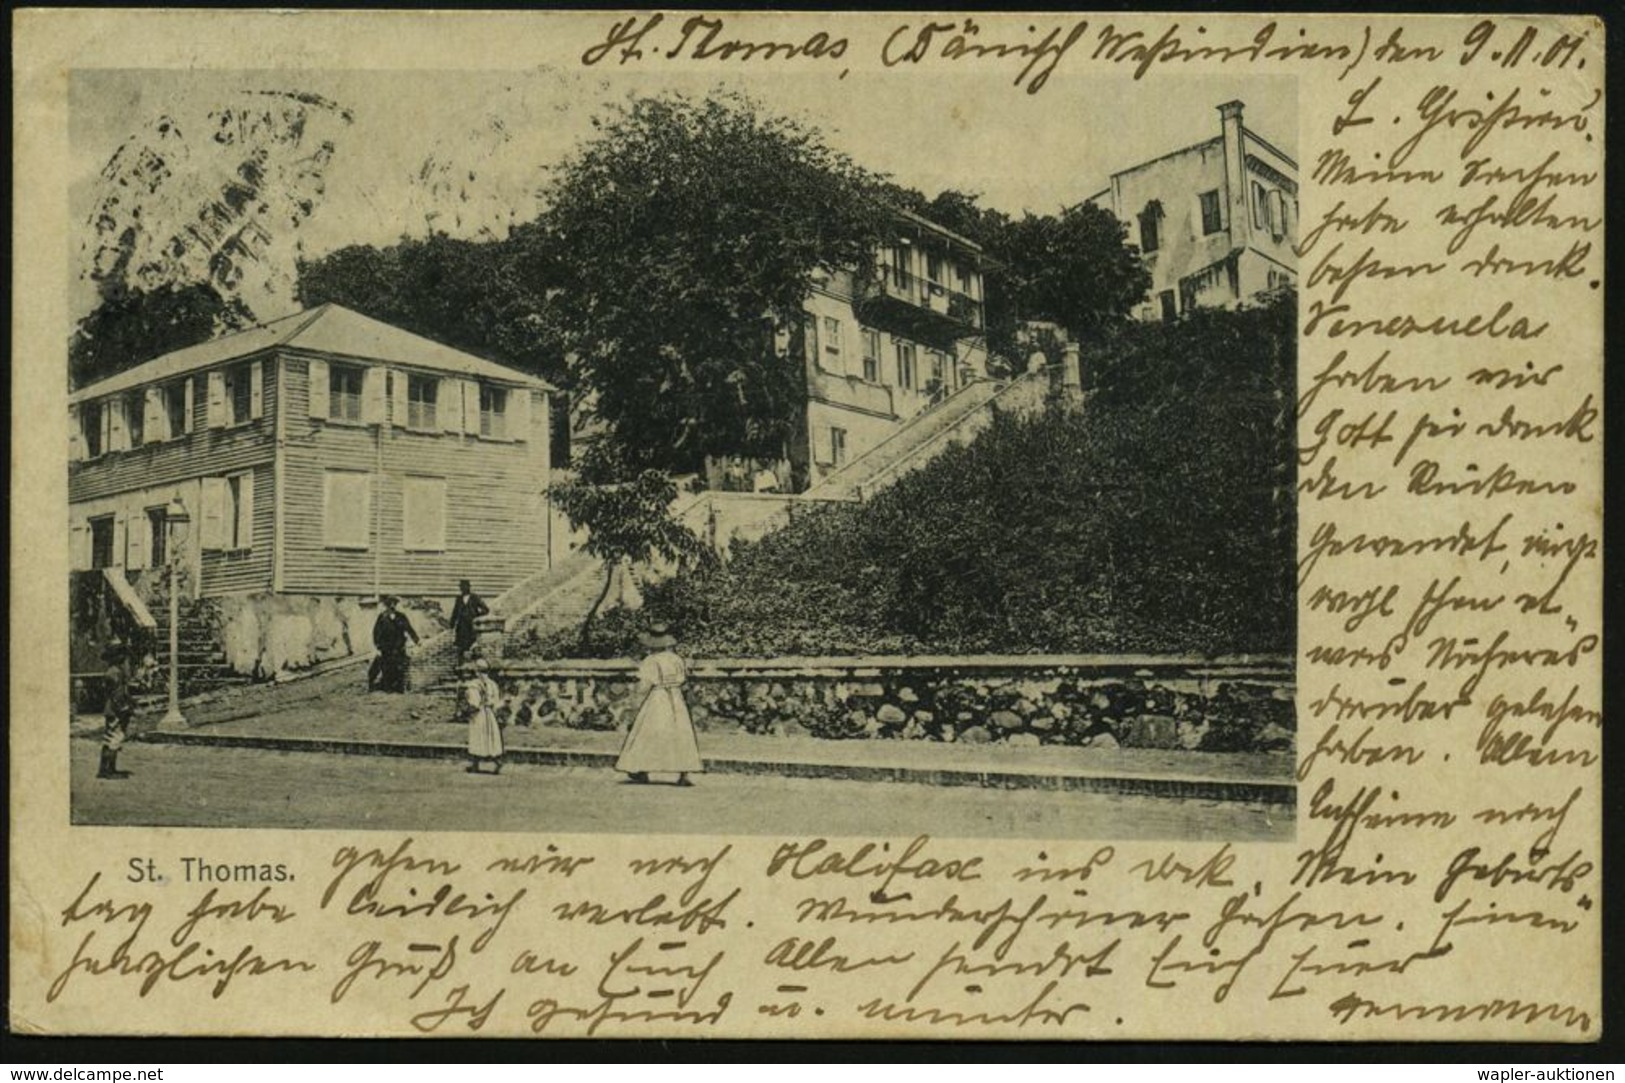 St. Thomas, (Dänisch Westindien) den 9.11.01.
L.
Meine Sachen
habe erhalten
besten Dank.
Venezuela
haben wir
Gott sei Dank
den Rücken
Gewendet,
wohl schon et„
was Näheres
darüber gelesen
haben. Allem
Anscheine nach
gehen wir nach Halifax ins Dock. Mein Geburts„
tag habe leidlich verlebt. Wunderschöner Hafen. Einen
herzlichen Gruß an Euch Allen sendet Euch Euer
Ich gesund u. munter. Hermann
St. Thomas.
www.delcampe.net
wapler-auktionen